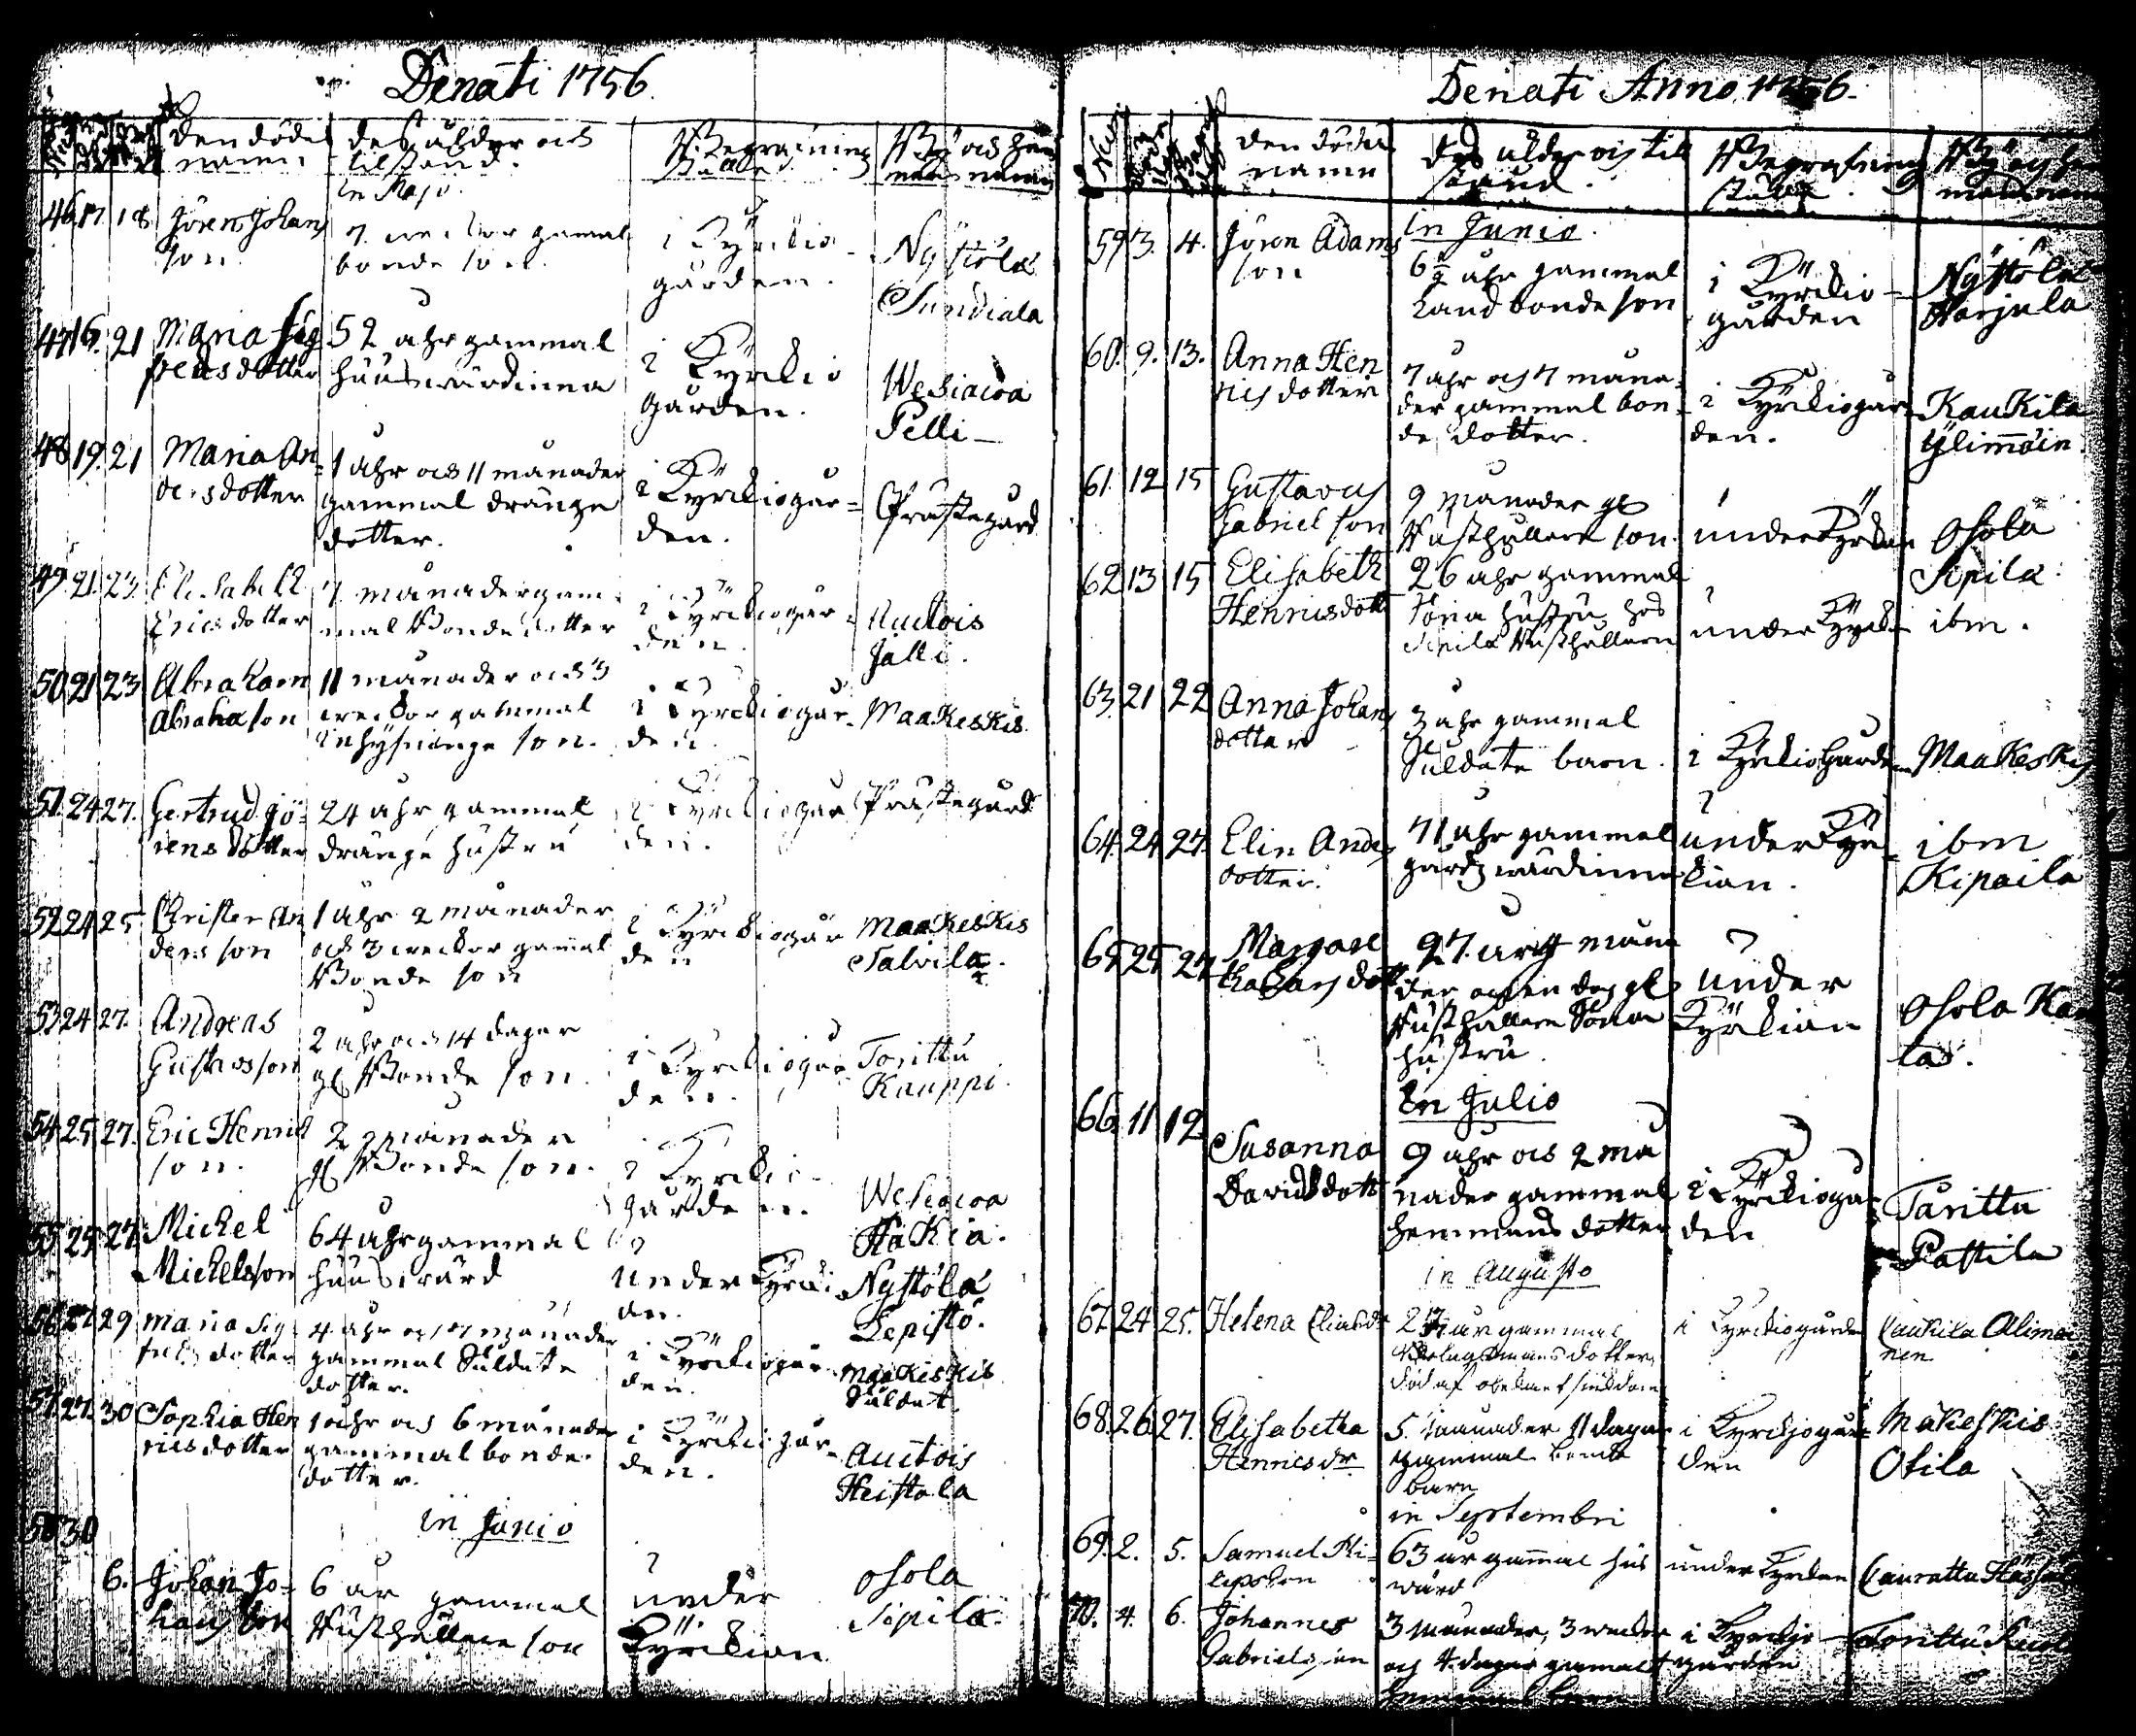 Denati 1756.
den dödes namn
dess ålder och tilstånd.
Begrafning Ställe
By och hem mans namn
In Majo.
46. 17 18 Jören Johans son
7. weckor gamal bonde son.
i Kyrckio gården.
Nystölä Sundiala
47 16. 21 Maria Sig freds dotter
52 ahr gammal huuswärdinna
i Kyrckio gården.
Wesiacoa Pelli
48 19. 21 Maria An= ders dotter
1 ahr och 11 månader gammal drängz dotter.
i Kyrckiogår= den.
Prästegård
49. 21. 23. Elisabeth Erics dotter
7. månader gam mal Bonde dotter
i Kyrckiogår= den.
Auctois Jalli.
50 21 23 Abraham Abraha son
11 månader och 3 weckor gammal inhysninge son.
i Kyrckiogår den
Maakeskis
51. 24 27. Gertrud Jö= rens dotter
24 ahr gammal drängz hustru
i Kyrckiogår den.
Prästegård
52 24 25 Christer An ders son
1 ahr 2 månader och 3 weckor gamal Bonde son
i Kyrckiogår den
Maakeskis Talvila.
53 24 27. Andreas Gustafsson
2 ahr och 14 dagar gl Bonde son.
i Kyrckiogår den.
Torittu Kauppi.
54 25 27. Eric Henrics son.
2 månader gl Bonde son.
i Kyrckio gården.
Wesiacoa Hakia.
55 25 27. Michel Michelsson
64 ahr gammal huuswärd
under Kyrcki an.
Nystölä Lepistö.
56 27 29 Maria Sig freds dotter
4 ahr och 7 månader gammal Suldate dotter.
i Kyrckiogår den.
Maakeskis Suldat.
57. 27. 30 Sophia Hen rics dotter
1 ahr och 6 månader gammal bonde dotter.
i Kyrckiogår den.
Auctois Heistola
In Junio
58 30 6. Johan Jo= hans son
6 år gammal Rusthållare son
under Kyrckian
Osola Sipilä.
Denati Anno 1756.
Num
den dödes namn
dess ålder och till stånd.
Begrafning ställe
By och hem mans namn
In Junio.
59 3. 4. Jören Adams son
6 1/2 ahr gammal Landbonde son
i Kyrckio= gården
Nystölä Harjula
60. 9. 13. Anna Hen rics dotter
7 ahr och 7 måna= der gammal bon= de dotter.
i Kyrckiogår= den.
Kaukila Ylimäin
61. 12 15 Gustavus Gabriel son
9 månader gl Rusthållare son.
under Kyrckan
Osola Sipilä.
62 13 15 Elisabeth Henricsdott
26 ahr gammal Sona hustru hos Sipilä Rusthållare
under Kyrck
ibm.
63. 21 22 Anna Johans dotter
3 ahr gammal Suldate barn.
i Kyrckiogården
Maakeskis
64. 24 27. Elin Anders dotter.
71 ahr gammal gårdz wärdinna
under Kyr= kian.
ibm Kipaila
65. 25 27. Margare tha Larsdott
27. år 4 måna der och en dag gl Rusthållare Sona hustru.
under Kyrckian
Osola
In Julio
66. 11 12 Susanna Davidsdott
9 ahr och 2 må nader gammal hemmans dotter
i Kyrckiogår den
Tarittu Pättilä
in Augusto
67. 24 25. Helena Eliasdr
år gammal dotter, död af obekant siukdom
i Kyrckiogården
Caukila Alimai nen
68. 26. 27. Elisabetha Henricsdr
5. månader 11 dagar gammal bonde barn
i Kyrckjogår= den
Mäkeskis Otila
in Septembri
69. 2. 5. Samuel Phi= lipsson
63 år gammal hus wärd
under Kyrckan
Laurattu
70. 4. 6. Johannes Gabrielsson
3 månader, 3 weckor och 4 dagar gamalt barn
i Kyrckjo gården
Torittu